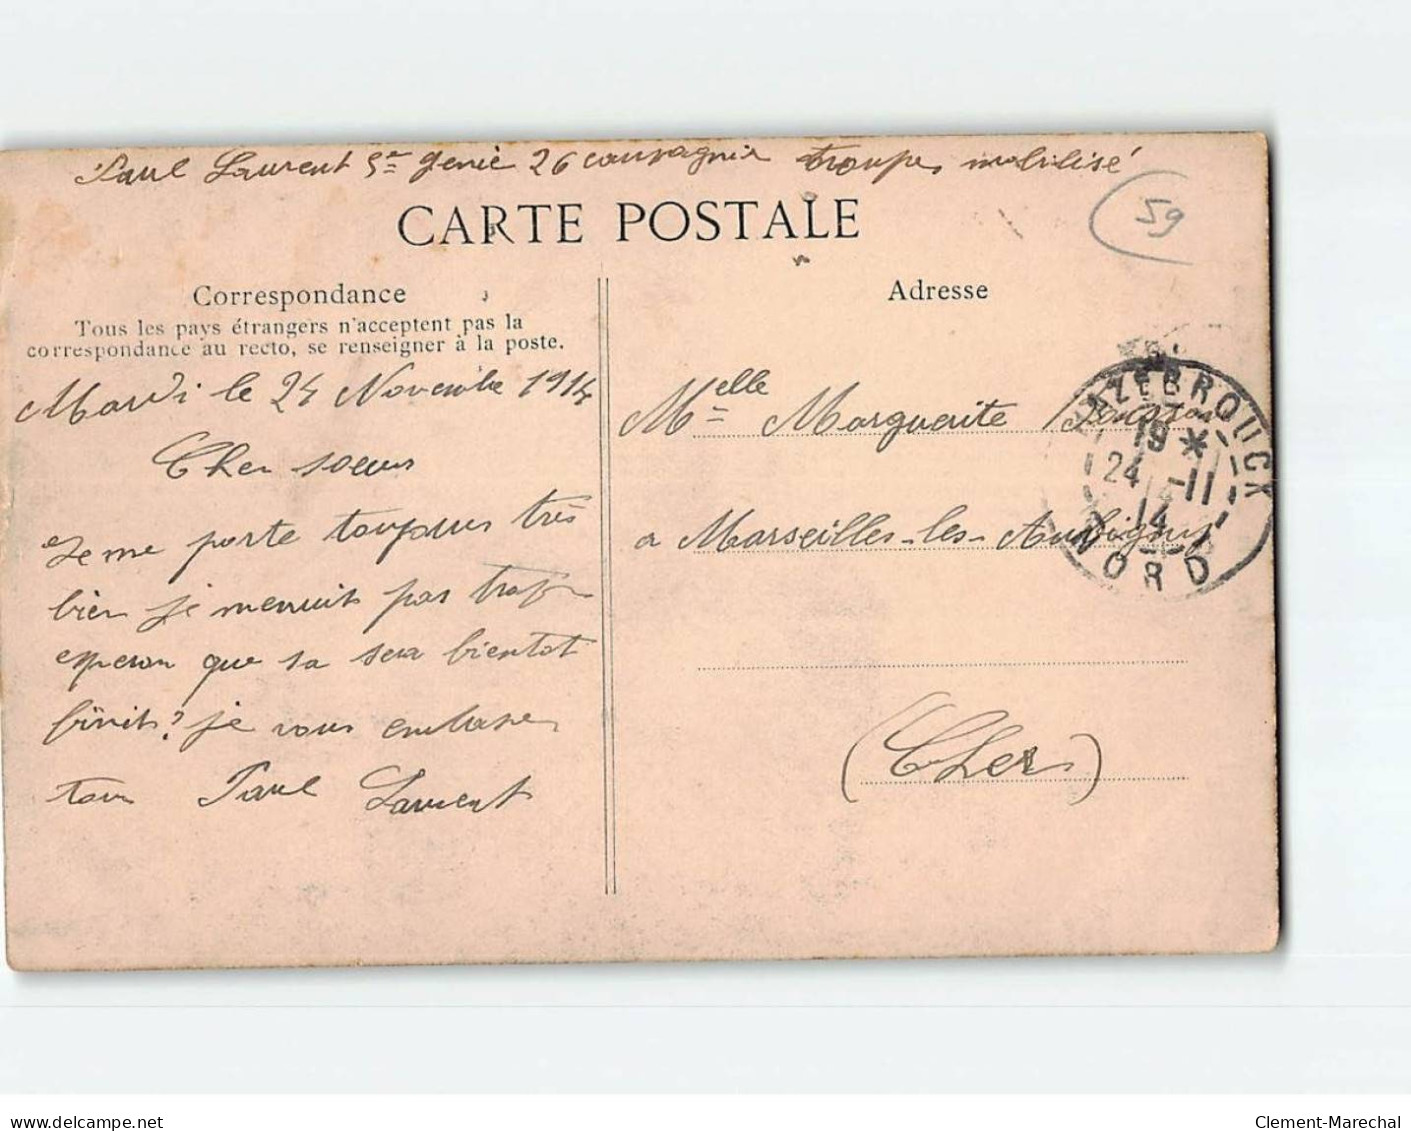 Paul Laurent 5e genie 26 compagnie troupes mobilisé
59
CARTE POSTALE
Correspondance
Tous les pays étrangers n'acceptent pas la
correspondance au recto, se renseigner à la poste.
Adresse
Mardi le 24 Novembre 1914
Cher soeur
Je me porte toujours très
bien je mennuit pas trop
esperon que sa sera bientot
finit? je vous embrasse
tous Paul Laurent
Melle Marguerite
a Marseilles-les-Aubigny
(Cher)
HAZEBROUCK
19 *
24 -11
14
NORD
delcampe.net
Clement-Marechal